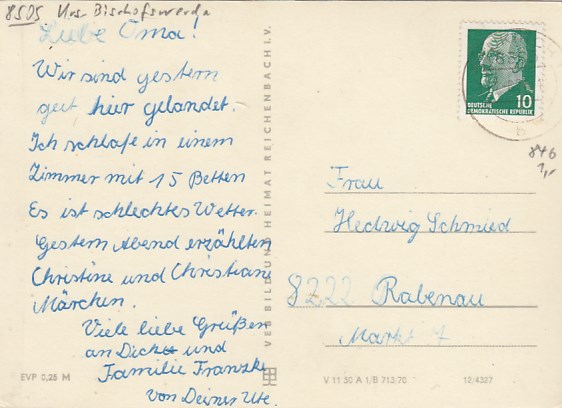 8505 Krs. Bischofswerda
Liebe Oma!
Wir sind gestern
gut hier gelandet.
Ich schlafe in einem
Zimmer mit 15 Betten
Es ist schlechtes Wetter.
Gestern Abend erzählten
Christine und Christiane
Märchen.
Viele liebe Grüßen
an Dich und
Familie Franzke
von Deiner Ute.
EVP 0,25 M
VEB BILD UND HEIMAT REICHENBACH I.V.
10
DEUTSCHE
DEMOKRATISCHE REPUBLIK
846
1,-
Frau
Hedwig Schmied
8222 Rabenau
Markt 7
V 11 50 A 1/B 713/70 12/4327